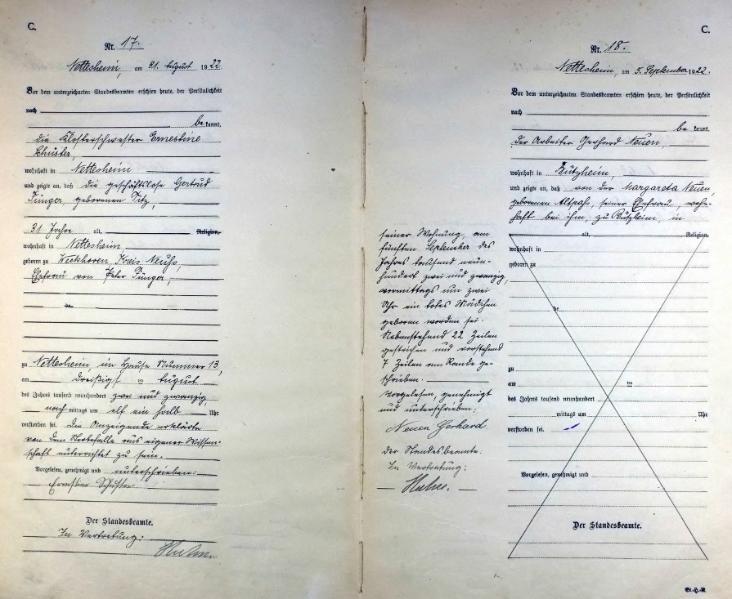 C.
Nr. 17.
Nettesheim, am 31. August 1922
Vor dem unterzeichneten Standesbeamten erschien heute, der Persönlichkeit
nach
be kannt,
die Klosterschwester Ernestine
wohnhaft in Nettesheim
und zeigte an, daß die geschäftslose Gertrud
Jünger geborenen Titz,
31 Jahre alt, Religion,
wohnhaft in Nettesheim
geboren zu Weckhoven Kreis Neuß,
Ehefrau von Peter Jünger,
zu Nettesheim, im Hause Nummer 13,
am dreißigst en August
des Jahres tausend neunhundert zwei und zwanzig,
nach mittags um elf ein halb Uhr
verstorben sei. Der Anzeigende erklärte
von dem Sterbefalle aus eigener Wissen-
schaft unterrichtet zu sein.
Vorgelesen, genehmigt und unterschrieben:
Der Standesbeamte.
In Vertretung:
C.
Nr. 18.
Nettesheim, am 5. September 1922.
Vor dem unterzeichneten Standesbeamten erschien heute, der Persönlichkeit
nach
be kannt,
der Arbeiter Gerhard Neuen,
wohnhaft in Bützheim,
und zeigte an, daß von der Margareta Neuen,
geborenen seiner Ehefrau, wohn-
haft bei ihm, zu Bützheim, in
alt, Religion,
wohnhaft in
geboren zu
zu
am en
des Jahres tausend neunhundert
mittags um Uhr
verstorben sei.
Vorgelesen, genehmigt und
Der Standesbeamte.
seiner Wohnung, am
fünften September des
Jahres tausend neun-
hundert zwei und zwanzig,
vormittags um zwei
Uhr ein totes Mädchen
geboren worden sei.
Nebenstehend 22 Zeilen
gestrichen und vorstehend
7 Zeilen am Rande ge-
schrieben.
Vorgelesen, genehmigt
und unterschrieben:
Neuen Gerhard
Der Standesbeamte.
In Vertretung: